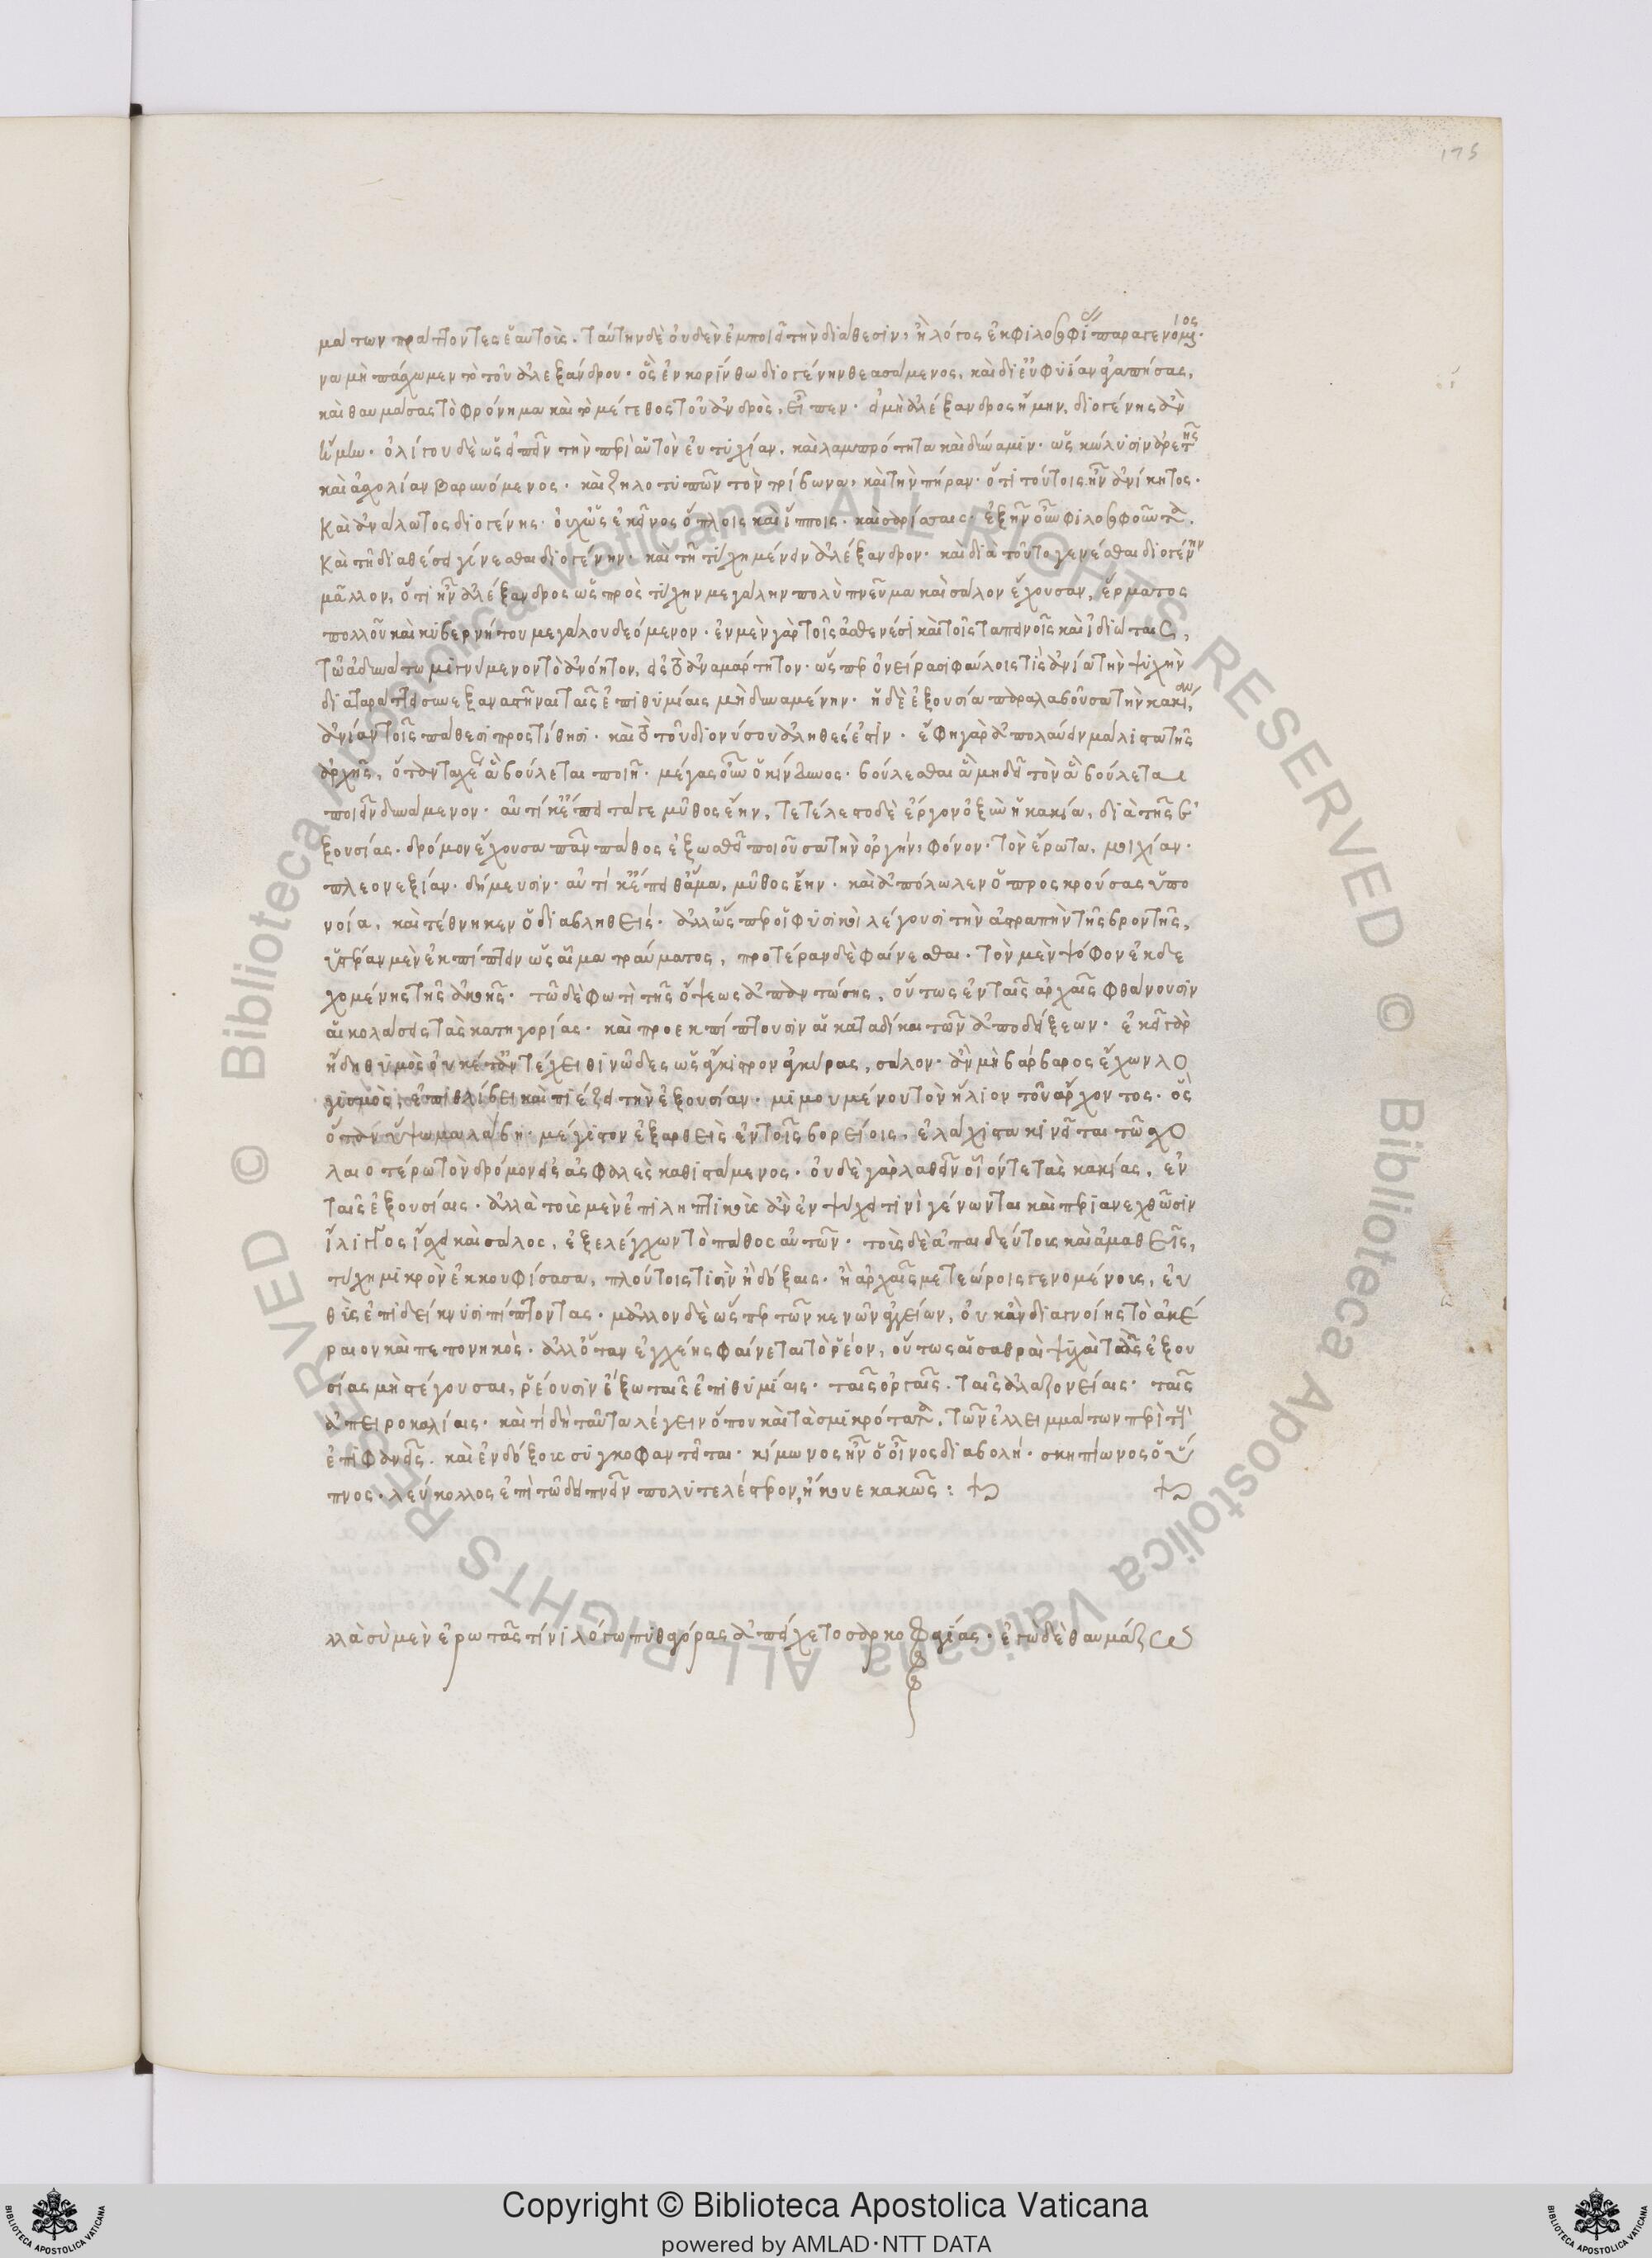 175
μάτων πράττοντες ἑαυτοῖς. ταύτην δὲ οὐδὲν ἐμποιεῖ τὴν διάθεσιν, ἢ λόγος ἐκ φιλοσοφίας παραγενόμενος.
ἵνα μὴ πάσχωμεν τὸ τοῦ ἀλεξάνδρου. ὃς ἐν κορίνθω διογένην θεασάμενος, καὶ δι' εὐφυΐαν ἀγαπήσας,
καὶ θαυμάσας τὸ φρόνημα καὶ τὸ μέγεθος τοῦ ἀνδρὸς, εἶπεν. εἰ μὴ ἀλέξανδρος ἤμην, διογένης ἂν
ἤμην. ὀλίγου δὲ ὡς εἰπεῖν τὴν περὶ αὑτὸν εὐτυχίαν, καὶ λαμπρότητα καὶ δύναμιν. ὡς κώλυσιν ἀρετῆς
καὶ ἀσχολίαν βαρυνόμενος. καὶ ζηλοτυπῶν τὸν τρίβωνα, καὶ τὴν πήραν. ὅτι τούτοις ἦν ἀνίκητος.
καὶ ἀνάλωτος διογένης. οὐχ ὡς ἐκεῖνος ὅπλοις καὶ ἵπποις. καὶ σαρίσσαις. ἐξῆν οὖν φιλοσοφοῦντα.
καὶ τῆ διαθέσει γίνεσθαι διογένην. καὶ τῆ τύχη μένειν ἀλέξανδρον. καὶ διὰ τοῦτο γενέσθαι διογένην
μᾶλλον, ὅτι ἦν ἀλέξανδρος ὡς πρὸς τύχην μεγάλην πολὺ πνεῦμα καὶ σάλον ἔχουσαν, ἕρματος
πολλοῦ καὶ κυβερνήτου μεγάλου δεόμενον. ἐν μὲν γὰρ τοῖς ἀσθενέσι καὶ τοῖς ταπεινοῖς καὶ ἰδιώταις,
τῶ ἀδυνάτω μιγνύμενον τὸ ἀνόητον, εἰς τὸ ἀναμάρτητον. ὥσπερ ὀνείρασι φαύλοις τὶς ἀνία τὴν ψυχὴν
διαταράττει συνεξαναστῆναι ταῖς ἐπιθυμίαις μὴ δυναμένην. ἡ δὲ ἐξουσία παραλαβοῦσα τὴν κακίαν,
ἀνίαν τοῖς πάθεσι προστίθησι. καὶ τὸ τοῦ διονύσου ἀληθές ἐστιν. ἔφη γὰρ ἀπολαύειν μάλιστα τῆς
ἀρχῆς, ὅταν ταχέως ἃ βούλεται ποιῆ. μέγας οὖν ὁ κίνδυνος. βούλεσθαι ἃ μὴ δεῖ τὸν ἃ βούλεται
ποιεῖν δυνάμενον. αὐτίκ' ἔπειτά γε μῦθος ἔην, τετέλεστο δὲ ἔργον ὀξὺ ἡ κακία, διὰ τῆς ἐ
ξουσίας. δρόμον ἔχουσα πᾶν πάθος ἐξωθεῖ ποιοῦσα τὴν ὀργήν, φόνον. τὸν ἔρωτα, μοιχίαν.
πλεονεξίαν. δήμευσιν. αὐτίκ' ἔπειθ' ἅμα, μῦθος ἔην. καὶ ἀπόλωλεν ὁ προσκρούσας ὑπο
νοία, καὶ τέθνηκεν ὁ διαβληθείς. ἀλλ' ὥσπερ οἱ φυσικοὶ λέγουσι τὴν ἀστραπὴν τῆς βροντῆς,
ὑστέραν μὲν ἐκπίπτειν ὡς αἷμα τραύματος, προτέραν δὲ φαίνεσθαι. τὸν μὲν ψόφον ἐκδε
χομένης τῆς ἀκοῆς. τῶ δὲ φωτὶ τῆς ὄψεως ἀπαντώσης, οὕτως ἐν ταῖς ἀρχαῖς φθάνουσιν
αἱ κολάσεις τὰς κατηγορίας. καὶ προεκπίπτουσιν αἱ καταδίκαι τῶν ἀποδείξεων. εἴκει γὰρ
ἤδη θυμὸς οὐκέτ' ἀντέχει θινῶδες ὡς ἄγκιστρον ἀγκύρας, σάλον. ἂν μὴ βάρβαρος ἔχων λο
γισμὸς, ἐπιθλίβει καὶ πιέζει τὴν ἐξουσίαν. μιμουμένου τὸν ἥλιον τοῦ ἄρχοντος. ὃς
ὅταν ὕψωμα λάβη. μέγιστον ἐξαρθεὶς ἐν τοῖς βορείοις, ἐλάχιστα κινεῖται τῶ σχο
λαιοτέρω τὸν δρόμον εἰς ἀσφαλὲς καθιστάμενος. οὐδὲ γὰρ λαθεῖν οἷόν τε τὰς κακίας, ἐν
ταῖς ἐξουσίαις. ἀλλὰ τοὺς μὲν ἐπιληπτικοὺς ἂν ἐν ψύχει τινὶ γένωνται καὶ περιανεχθῶσιν
ἴλιγγος ἴσχει καὶ σάλος, ἐξελέγχων τὸ πάθος αὐτῶν. τοὺς δὲ ἀπαιδεύτους καὶ ἀμαθεῖς,
τύχη μικρὸν ἐκκουφίσασα, πλούτοις τισὶν ἢ δόξαις. ἢ ἀρχαῖς μετεώροις γενομένους, εὐ
θὺς ἐπιδείκνυσι πίπτοντας. μᾶλλον δὲ ὥσπερ τῶν κενῶν ἀγγείων, οὐκ ἂν διαγνοίης τὸ ἀκέ
ραιον καὶ πεπονηκὸς. ἀλλ' ὅταν ἐγχέης φαίνεται τὸ ῥέον, οὕτως αἱ σαθραὶ ψυχαὶ τὰς ἐξου
σίας μὴ στέγουσαι, ῥέουσιν ἔξω ταῖς ἐπιθυμίαις. ταῖς ὀργαῖς. ταῖς ἀλαζονείαις. ταῖς
ἀπειροκαλίαις. καὶ τί δὴ ταῦτα λέγειν ὅπου καὶ τὰ σμικρότατα, τῶν ἐλλειμμάτων περὶ τοὺς
ἐπιφανεῖς. καὶ ἐνδόξους συκοφαντεῖται. κίμωνος ἦν ὁ οἶνος διαβολή. σκηπίωνος ὁ ὕ
πνος. λεύκολλος ἐπὶ τῶ δειπνεῖν πολυτελέστερον, ἤκουε κακῶς:
λλὰ σὺ μὲν ἐρωτᾶς τίνι λόγω πυθαγόρας ἀπείχετο σαρκοφαγίας. ἐγὼ δὲ θαυμάζω
Copyright © Biblioteca Apostolica Vaticana
powered by AMLAD·NTT DATA
© Biblioteca Apostolica Vaticana ALL RIGHTS RESERVED
© Biblioteca Apostolica Vaticana ALL RIGHTS RESERVED
BIBLIOTECA APOSTOLICA VATICANA
BIBLIOTECA APOSTOLICA VATICANA